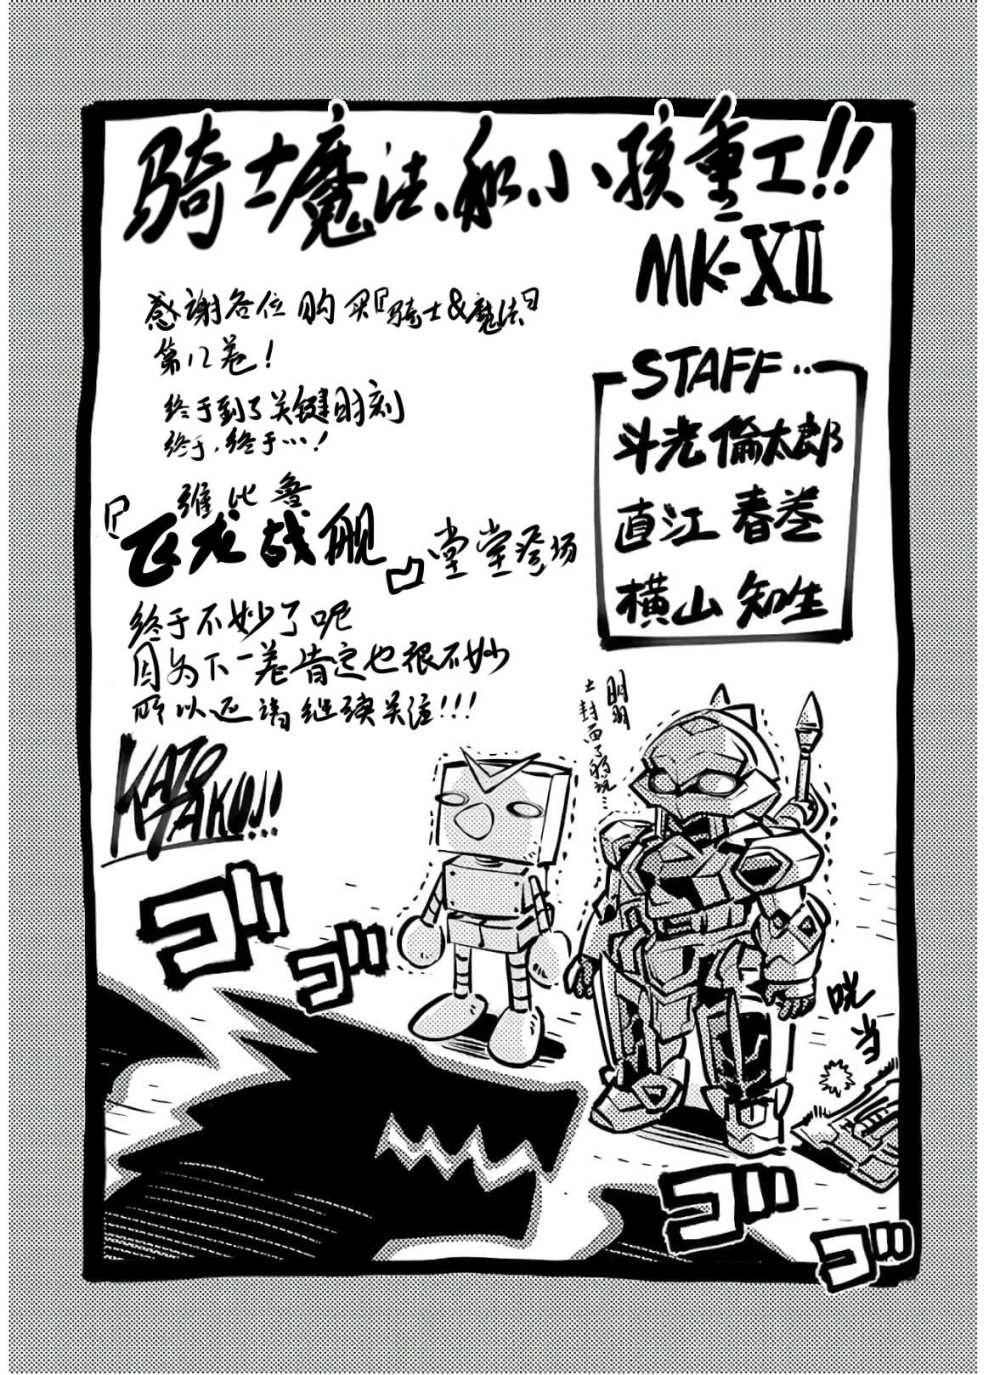 骑士魔法和小孩重工!!
MK-XII
感谢各位购买『骑士&魔法』
第12卷!
终于到了关键时刻
终于,终于…!
维比鲁
『飞龙战舰』堂堂登场
终于不妙了呢
因为下一卷肯定也很不妙
所以还请继续关注!!!
KATO
TAKU!!!
STAFF‥
斗光倫太郎
直江 春巻
横山 知生
明明
上封面了的说…
ゴ
ゴ
咣当
ゴ
ゴ